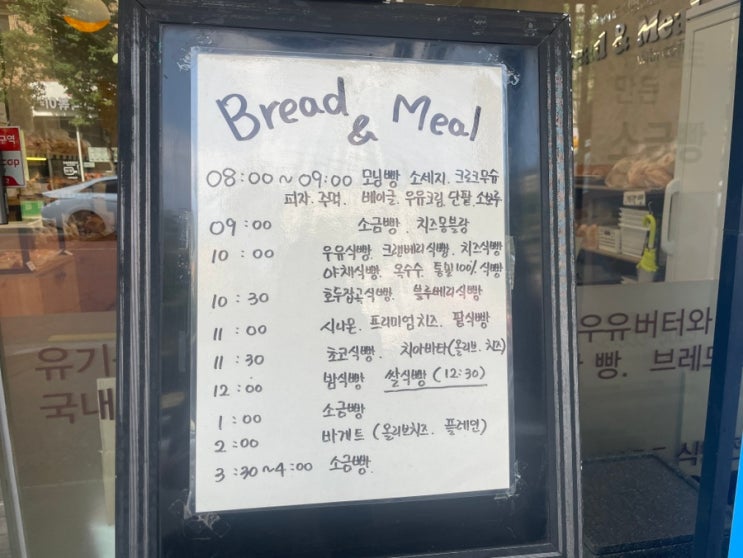 Bread & Meal
08:00 ~ 09:00 모닝빵 소세지. 크로크무슈
피자. 주먹. 베이글. 우유크림. 단팥. 소보루
09:00 소금빵. 치즈몽블랑
10:00 우유식빵. 크랜베리식빵. 치즈식빵
야채식빵. 옥수수. 통밀100% 식빵
10:30 호두잡곡식빵. 블루베리식빵
11:00 시나몬. 프리미엄치즈. 팥식빵
11:30 초코식빵. 치아바타(올리브. 치즈)
12:00 밤식빵 쌀식빵 (12:30)
1:00 소금빵
2:00 바게트 (올리브치즈. 플레인)
3:30~4:00 소금빵.
& Me
만든
소금빵
구역
유기
국내
우유버터와
빵. 브레드
식